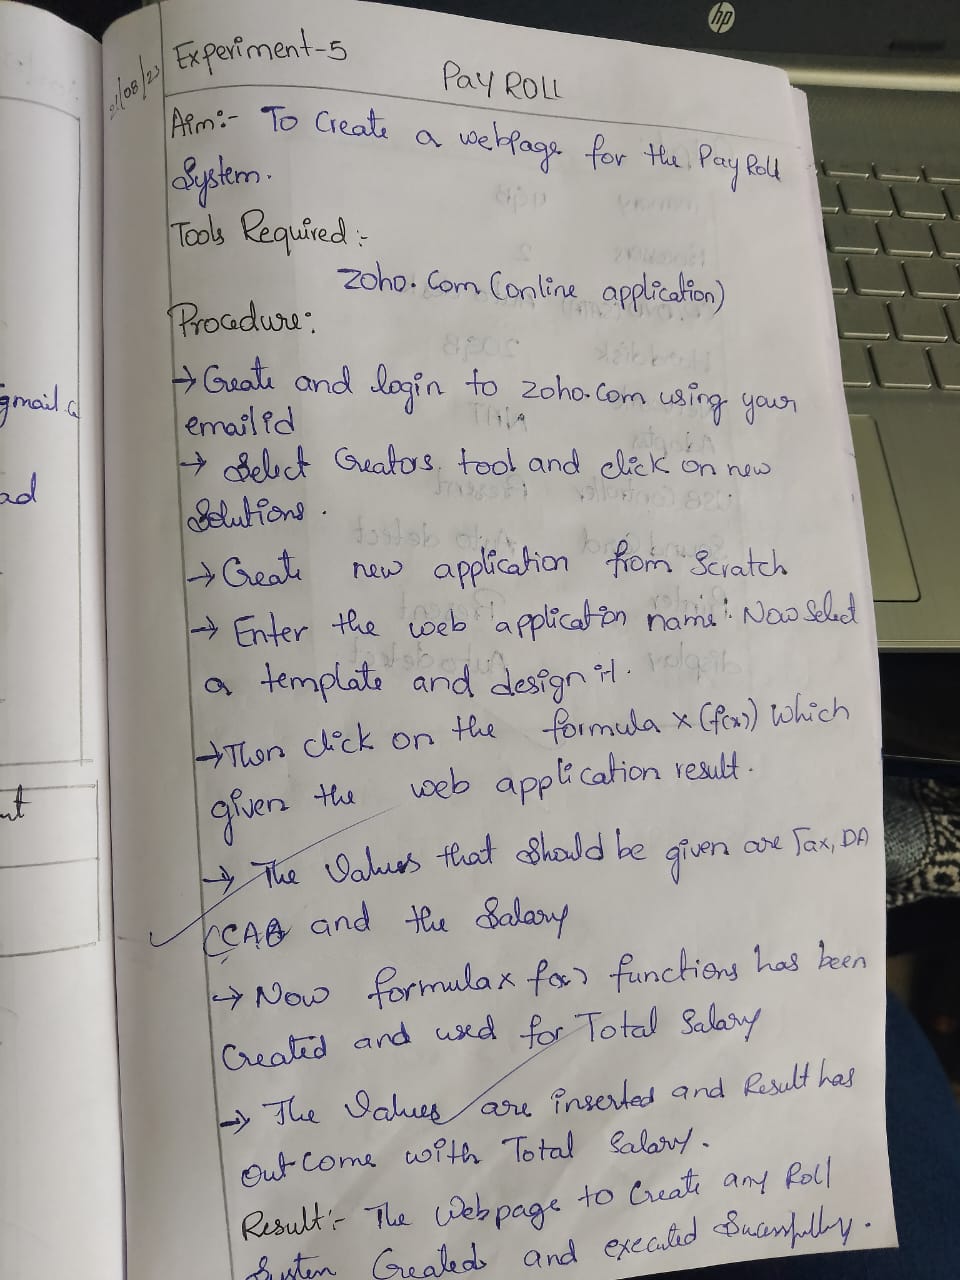 hp
21/08/23
Experiment-5
PAY ROLL
Aim:- To Create a webpage for the Pay Roll
System.
Tools Required :-
Zoho.Com (online application)
Procedure:
→ Create and login to zoho.com using your
emailid
→ Select Creators tool and click on new
Solutions.
→ Create new application from Scratch
→ Enter the web application name. Now Select
a template and design it.
→ Then click on the formula x (f(x)) which
given the web application result.
→ The Values that should be given are Tax, DA
CCA and the Salary
→ Now formula x f(x) functions has been
Created and used for Total Salary
→ The Values are inserted and Result has
Out come with Total Salary.
Result:- The Webpage to Create any Roll
System Created and executed Sucessfully.
gmail.c
ad
nt